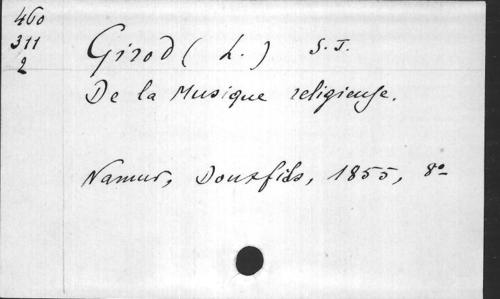 460
311
2
Girod (L.) S. J.
De la Musique religieuse.
Namur, Douxfils, 1855, 8°